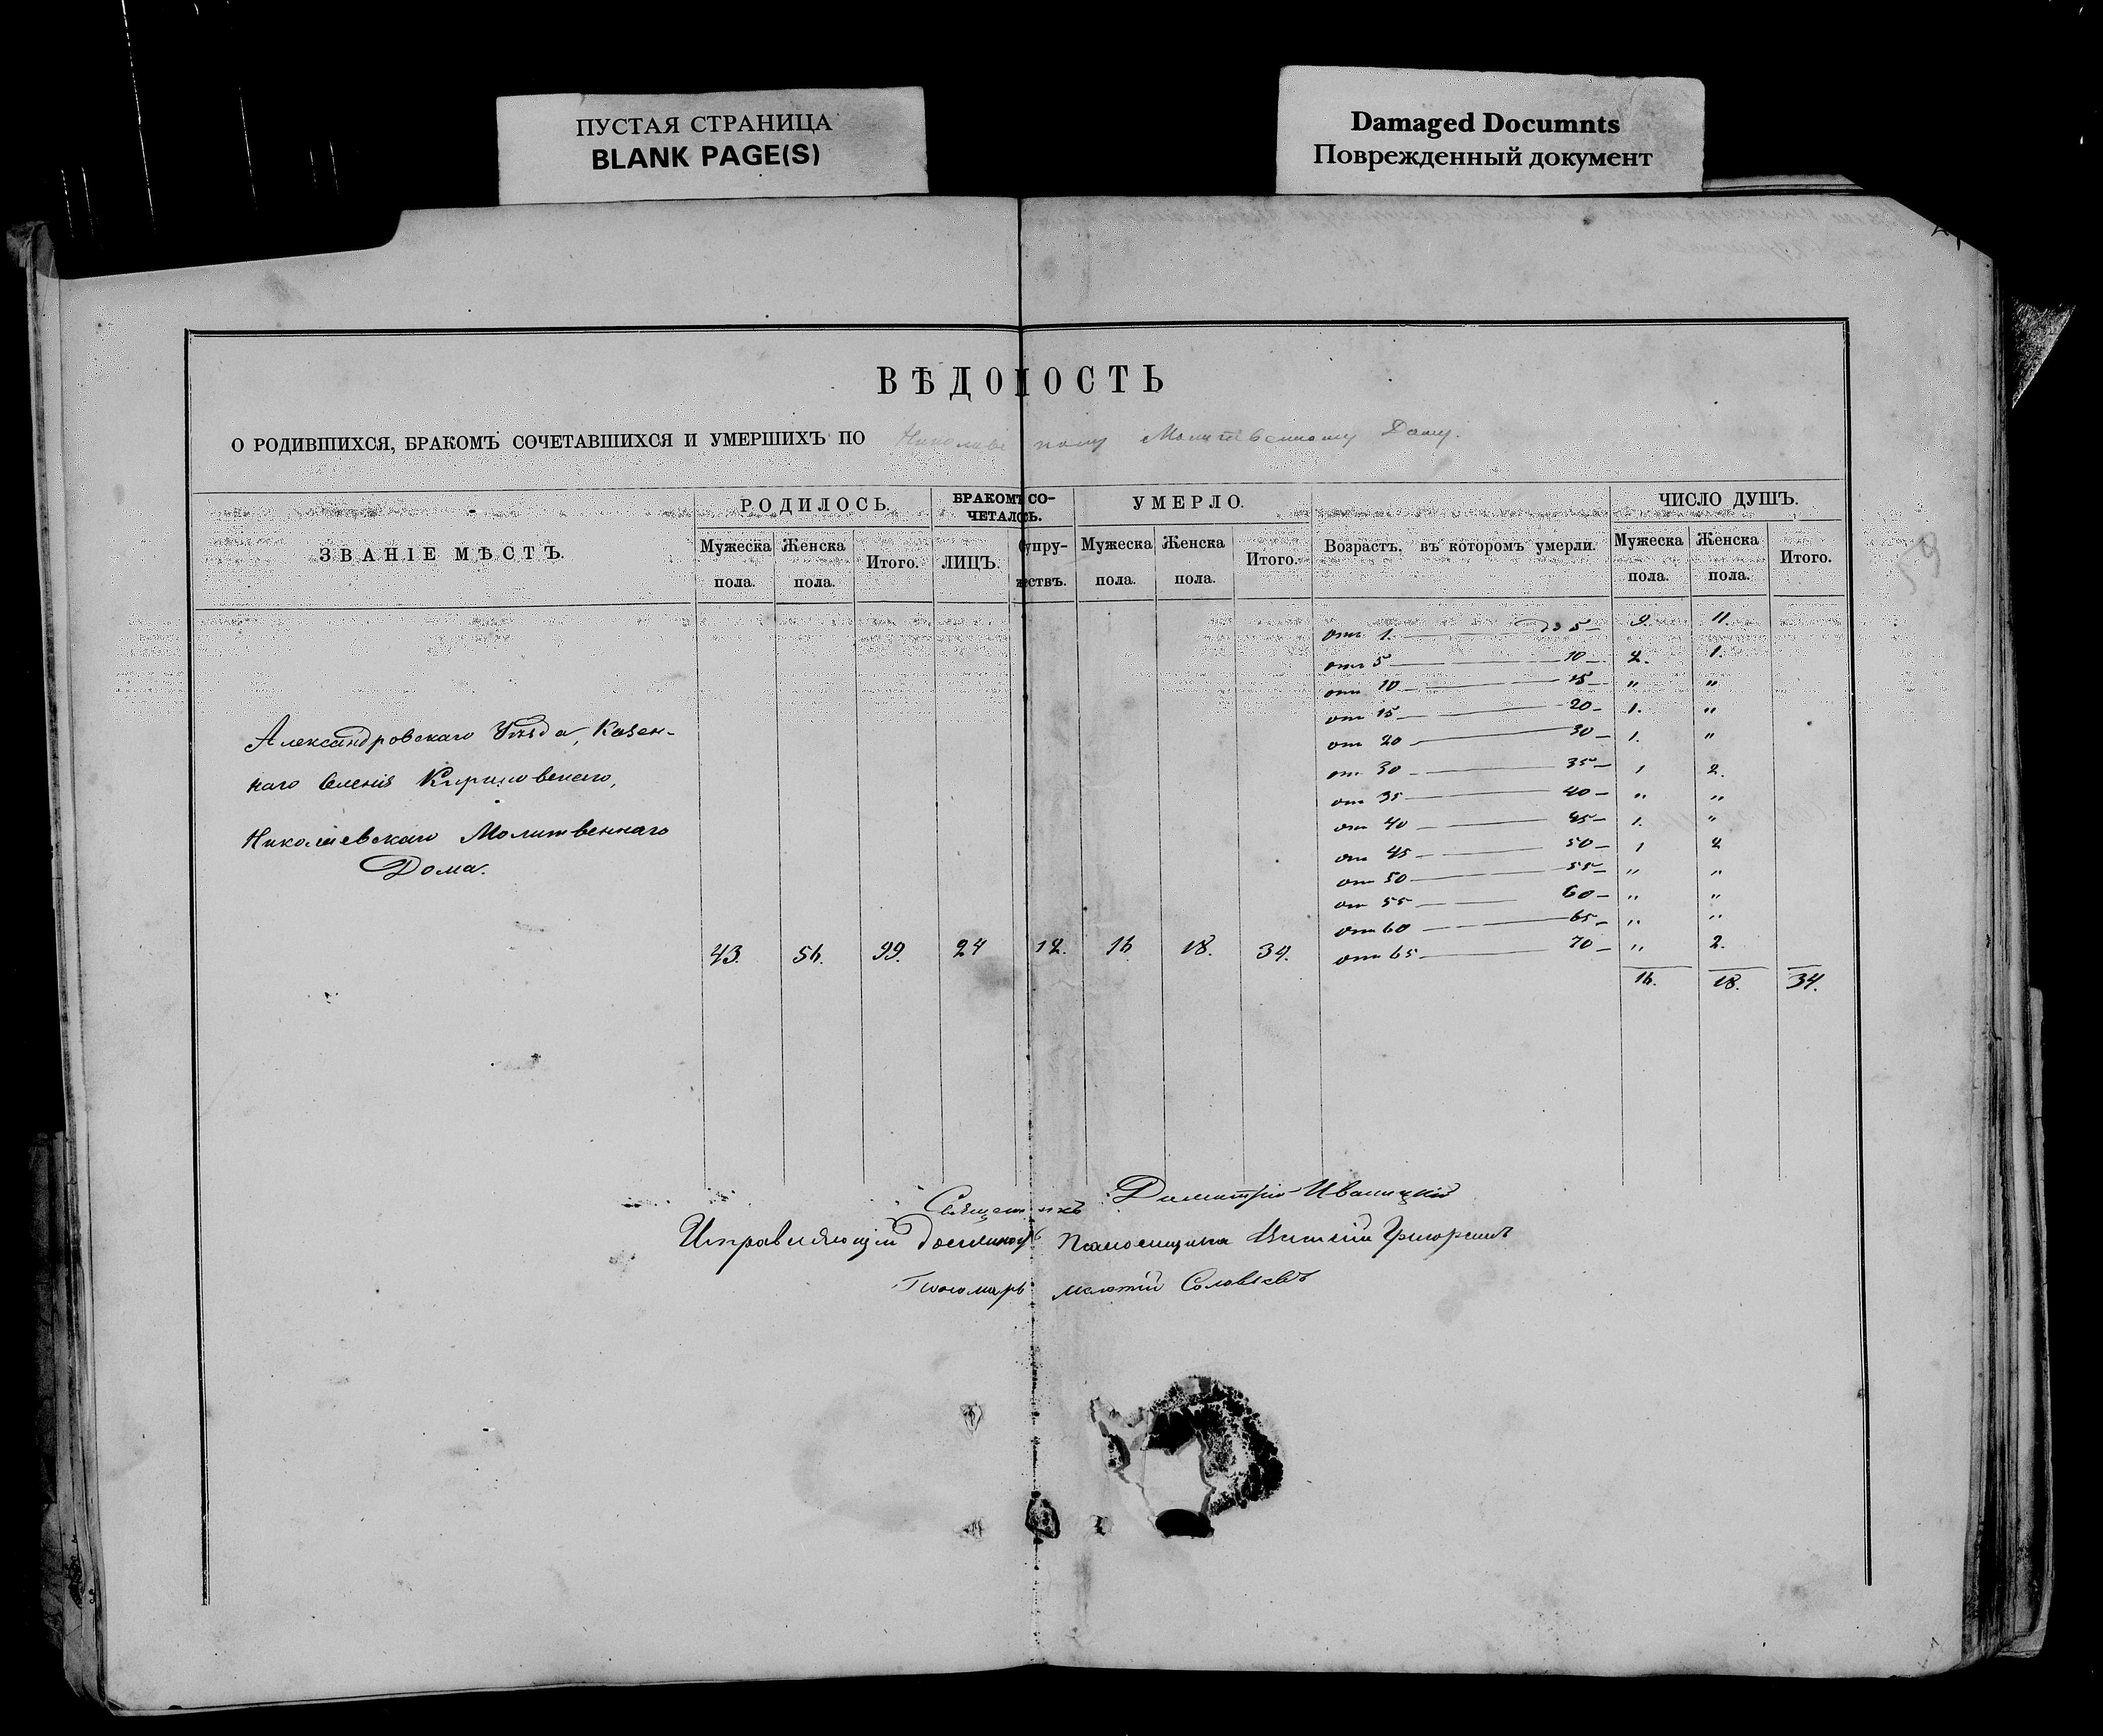 ПУСТАЯ СТРАНИЦА
BLANK PAGE(S)
Damaged Documnts
Поврежденный документ
ВѢДОМОСТЬ
О РОДИВШИХСЯ, БРАКОМЪ СОЧЕТАВШИХСЯ И УМЕРШИХЪ ПО Николаевскому Молитвенному Дому.
ЗВАНІЕ МѢСТЪ. РОДИЛОСЬ. БРАКОМЪ СО-ЧЕТАЛОСЬ. УМЕРЛО. Возрастъ, въ которомъ умерли. ЧИСЛО ДУШЪ.
Мужеска пола. Женска пола. Итого. ЛИЦЪ. Супру-жествъ. Мужеска пола. Женска пола. Итого. Мужеска пола. Женска пола. Итого.
отъ 1. до 5 9. 11.
отъ 5 10 2. 1.
отъ 10 15 " "
отъ 15 20 1. "
отъ 20 30 1. "
отъ 30 35 1 2.
отъ 35 40 " "
отъ 40 45 1. "
отъ 45 50 1 2
отъ 50 55 " "
отъ 55 60 " "
отъ 60 65 " "
отъ 65 70 " 2.
Александровскаго Уѣзда, Казен-
наго Селенія
Николаевскаго Молитвеннаго
Дома.
43. 56. 99. 24 12. 16 18. 34.
16. 18. 34.
Священникъ Димитрій Иваницкій
Исправляющій должность
Пономарь Соловьевъ
59